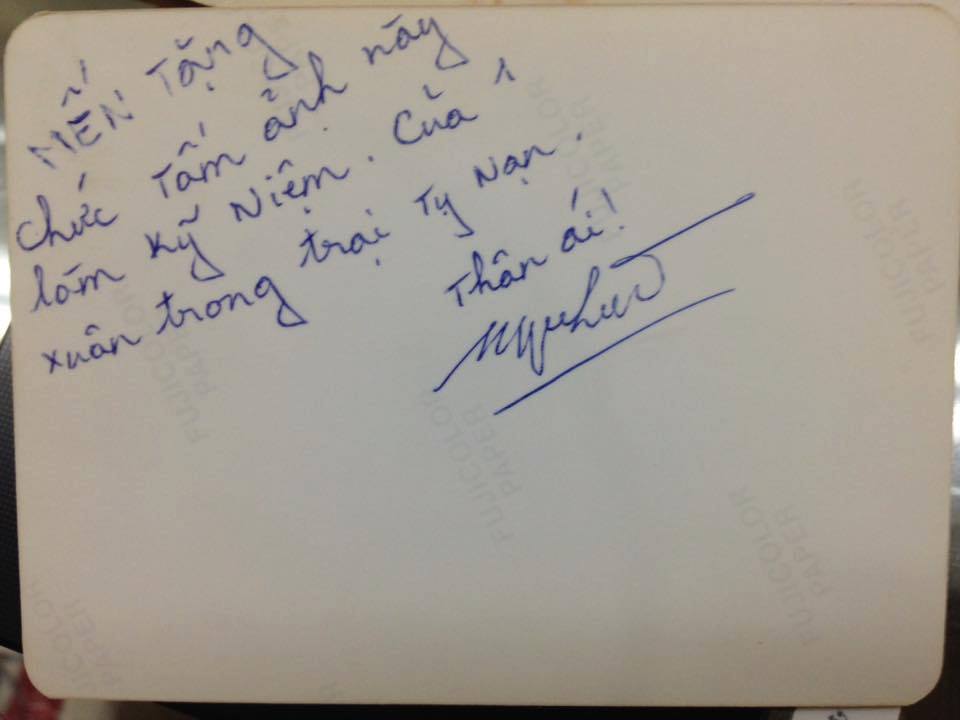 MẾN Tặng
chức Tấm ảnh này
làm kỹ Niệm. Của 1
xuân trong trại Tỵ Nạn.
Thân ái!
FUJICOLOR
PAPER
FUJICOLOR
PAPER
FUJICOLOR
PAPER
FUJICOLOR
PAPER
FUJICOLOR
PAPER
FUJICOLOR
PAPER